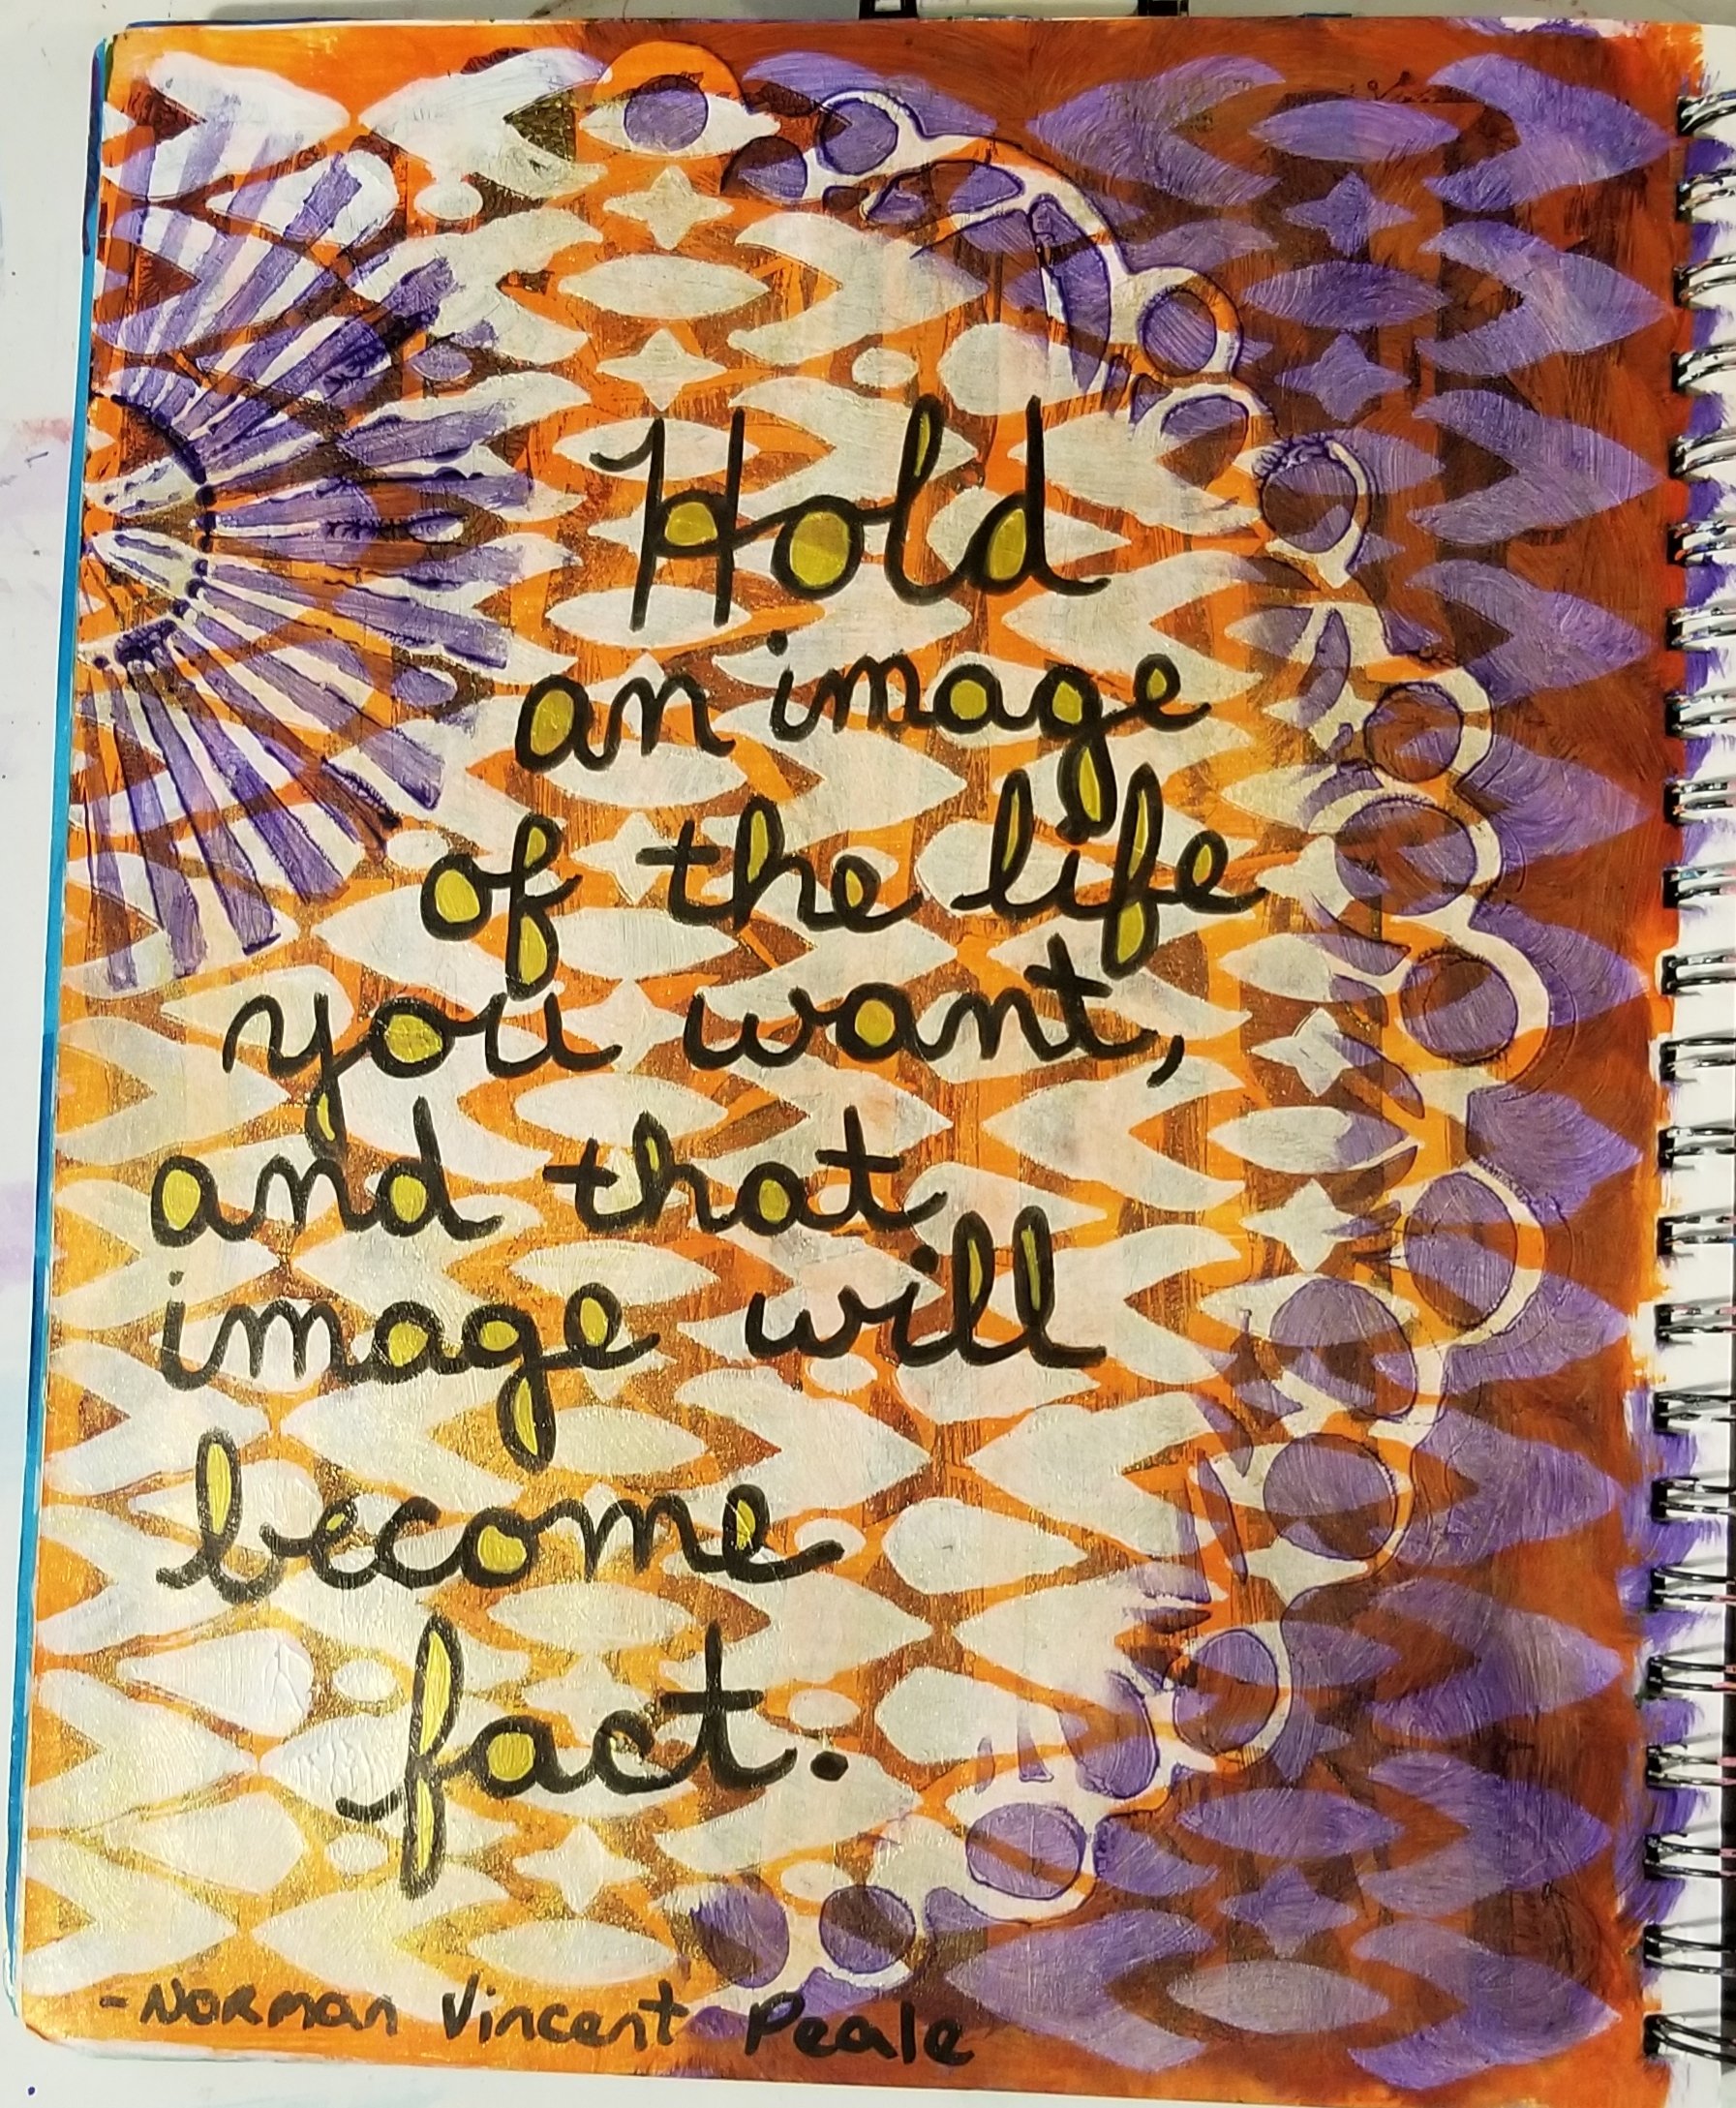 Hold
an image
of the life
you want,
and that
image will
become
fact.
-Norman Vincent Peale